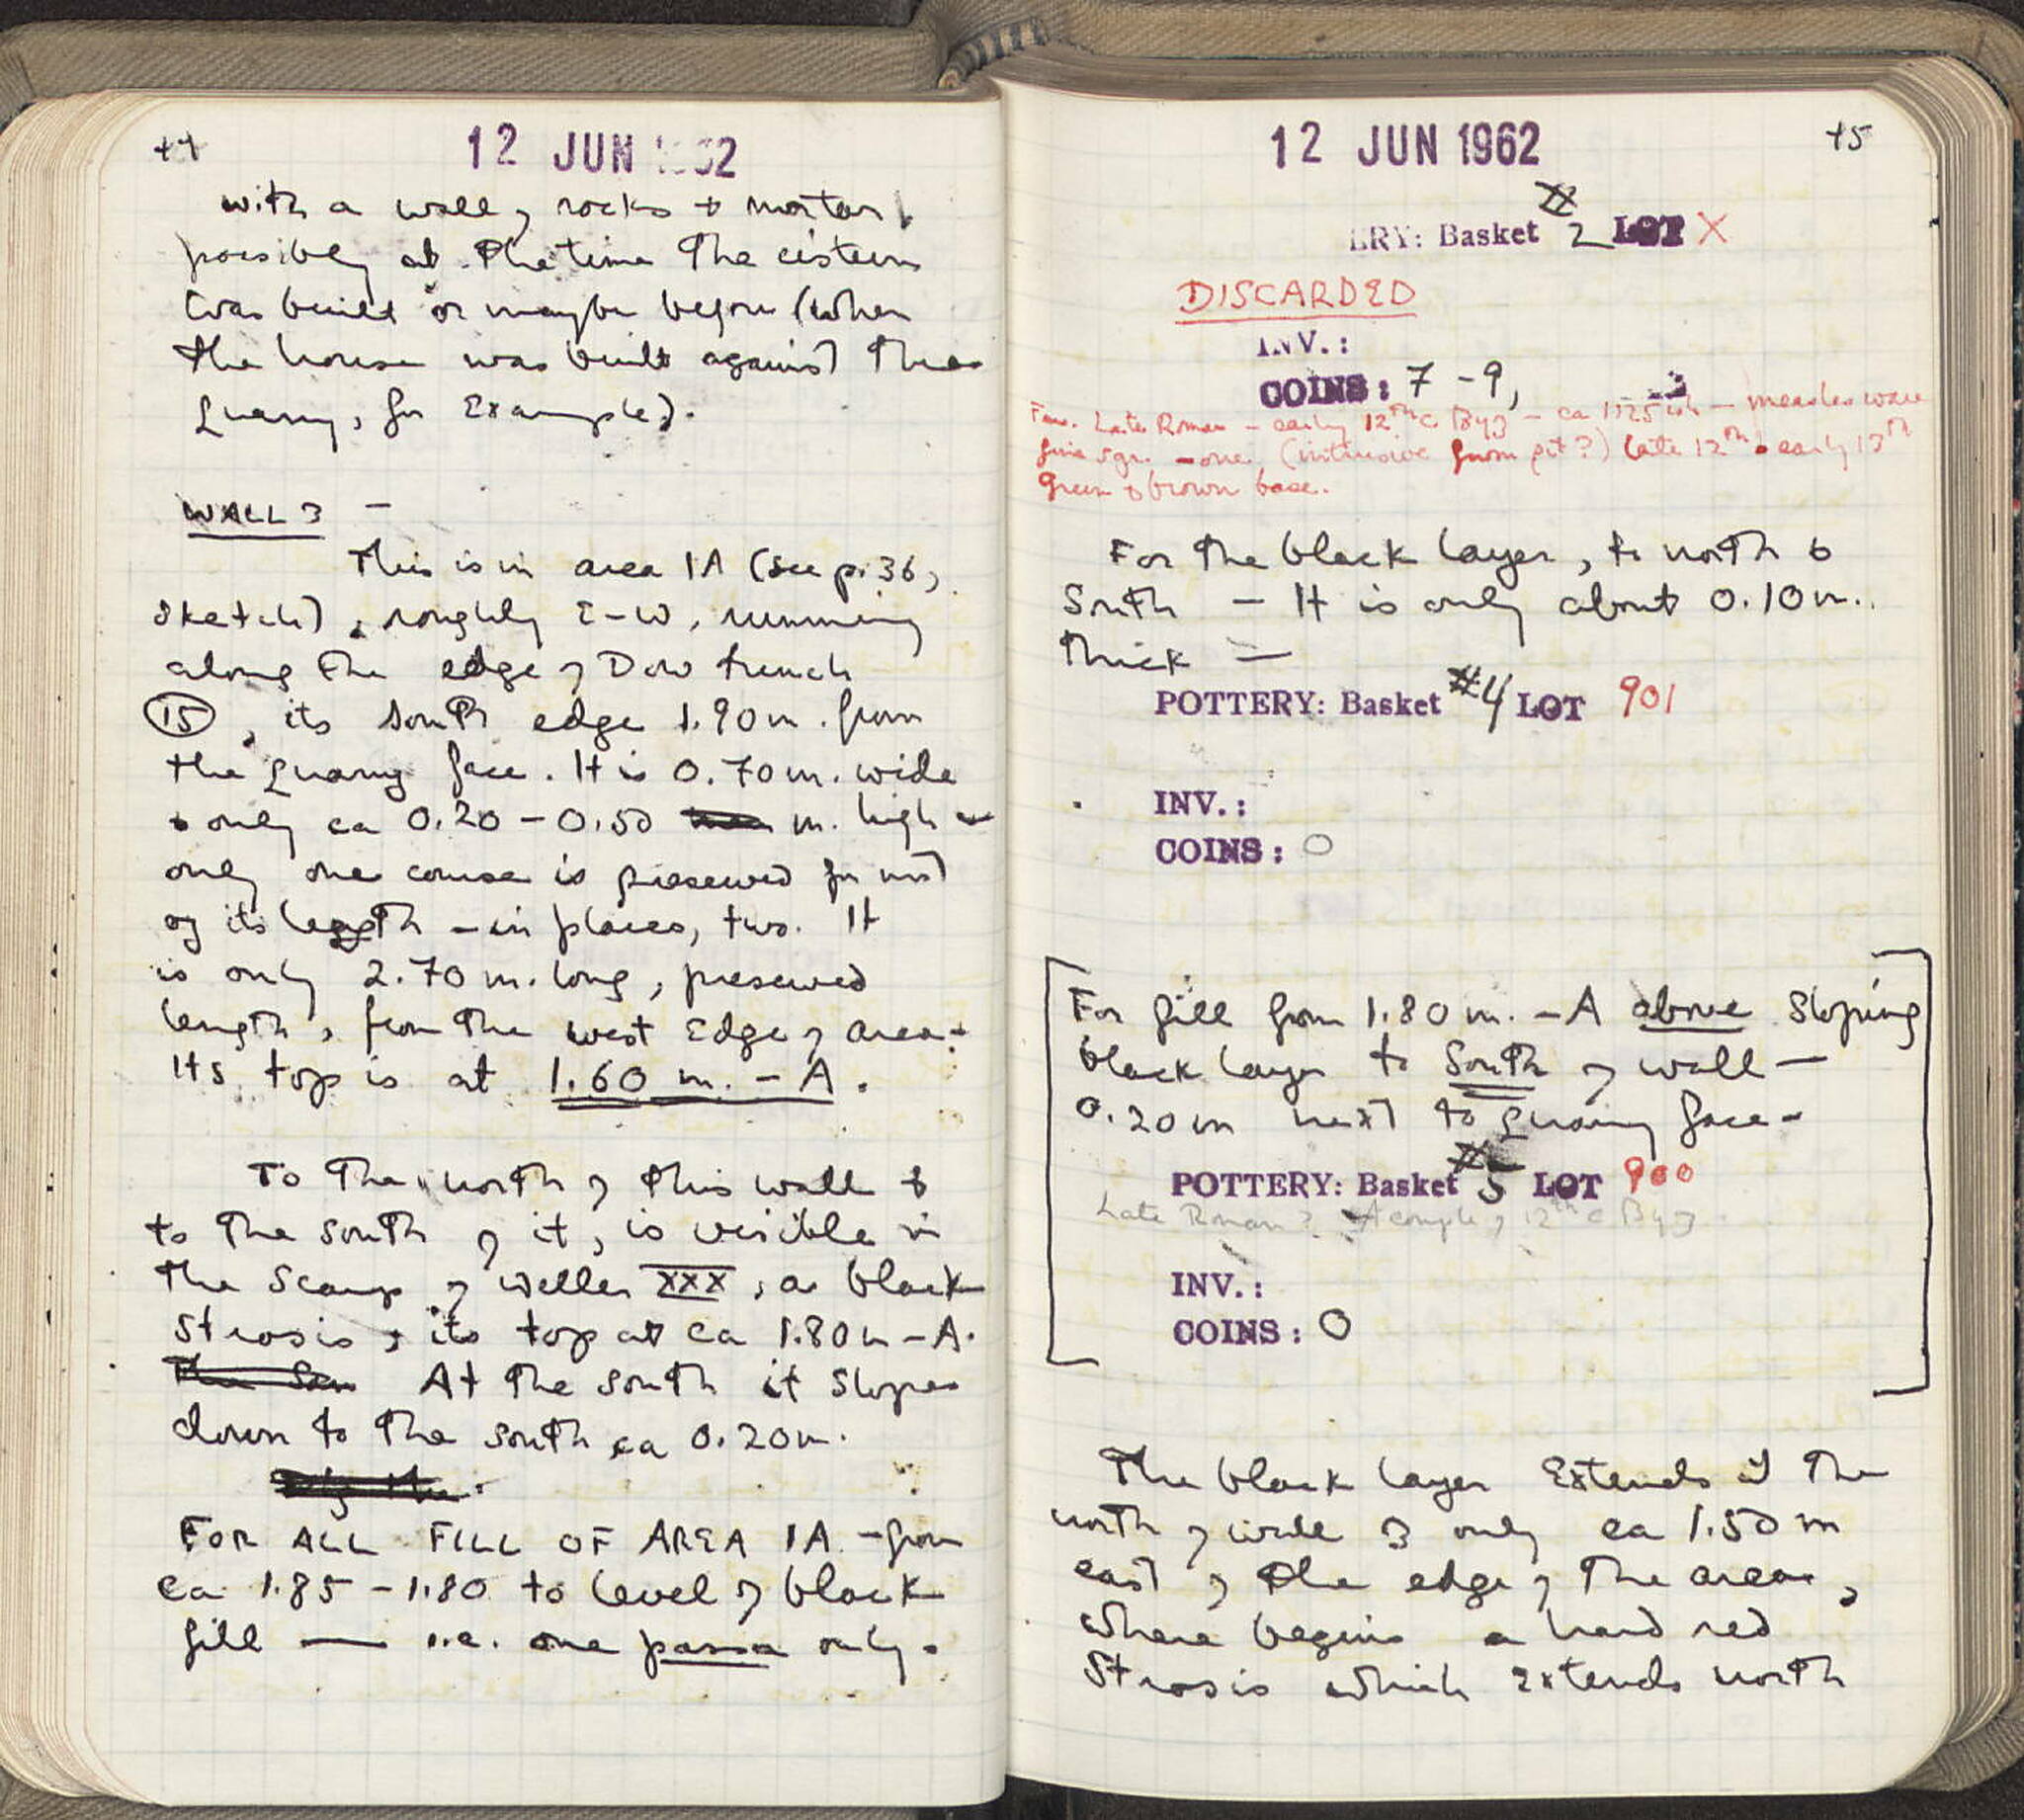 44
12 JUN 1962
with a wall of rocks + mortar,
possibly at the time the cistern
was built or maybe before (when
the house was built against the
quarry, for Example).
WALL 3 —
This is in area 1A (see p. 36,
sketch), roughly E-W, running
along the edge of Dow trench
15, its south edge 1.90 m. from
the quarry face. It is 0.70 m. wide
+ only ca 0.20 - 0.50 m. high -
only one course is preserved for most
of its length - in places, two. It
is only 2.70 m. long, preserved
length, from the west Edge of area.
Its top is at 1.60 m. - A.
To the north of this wall +
to the south of it, is visible in
the scarp of Weller XXX, a black
strosis, its top at ca 1.80 m - A.
At the south it slopes
down to the south ca 0.20 m.
FOR ALL FILL OF AREA 1A - from
ca 1.85 - 1.80 to level of black
fill — i.e. one passa only.
45
12 JUN 1962
ERY: Basket #2 LOT X
DISCARDED
INV.:
COINS: 7 - 9,
Few. Late Roman - early 12th c Byz - ca 1125 ish - measles ware
fine sgr. - one (intrusive from pit?) late 12th - early 13th
Green & brown base.
For the black layer, to north &
South - It is only about 0.10 m.
thick —
POTTERY: Basket #4 LOT 901
INV.:
COINS: 0
For fill from 1.80 m. - A above sloping
black layer to South of wall —
0.20 m next to quarry face -
POTTERY: Basket #5 LOT 900
Late Roman? A couple of 12th c Byz
INV.:
COINS: 0
The black layer Extends at the
north of wall 3 only ca 1.50 m
east of the edge of the area,
where begins a hard red
strosis which extends north